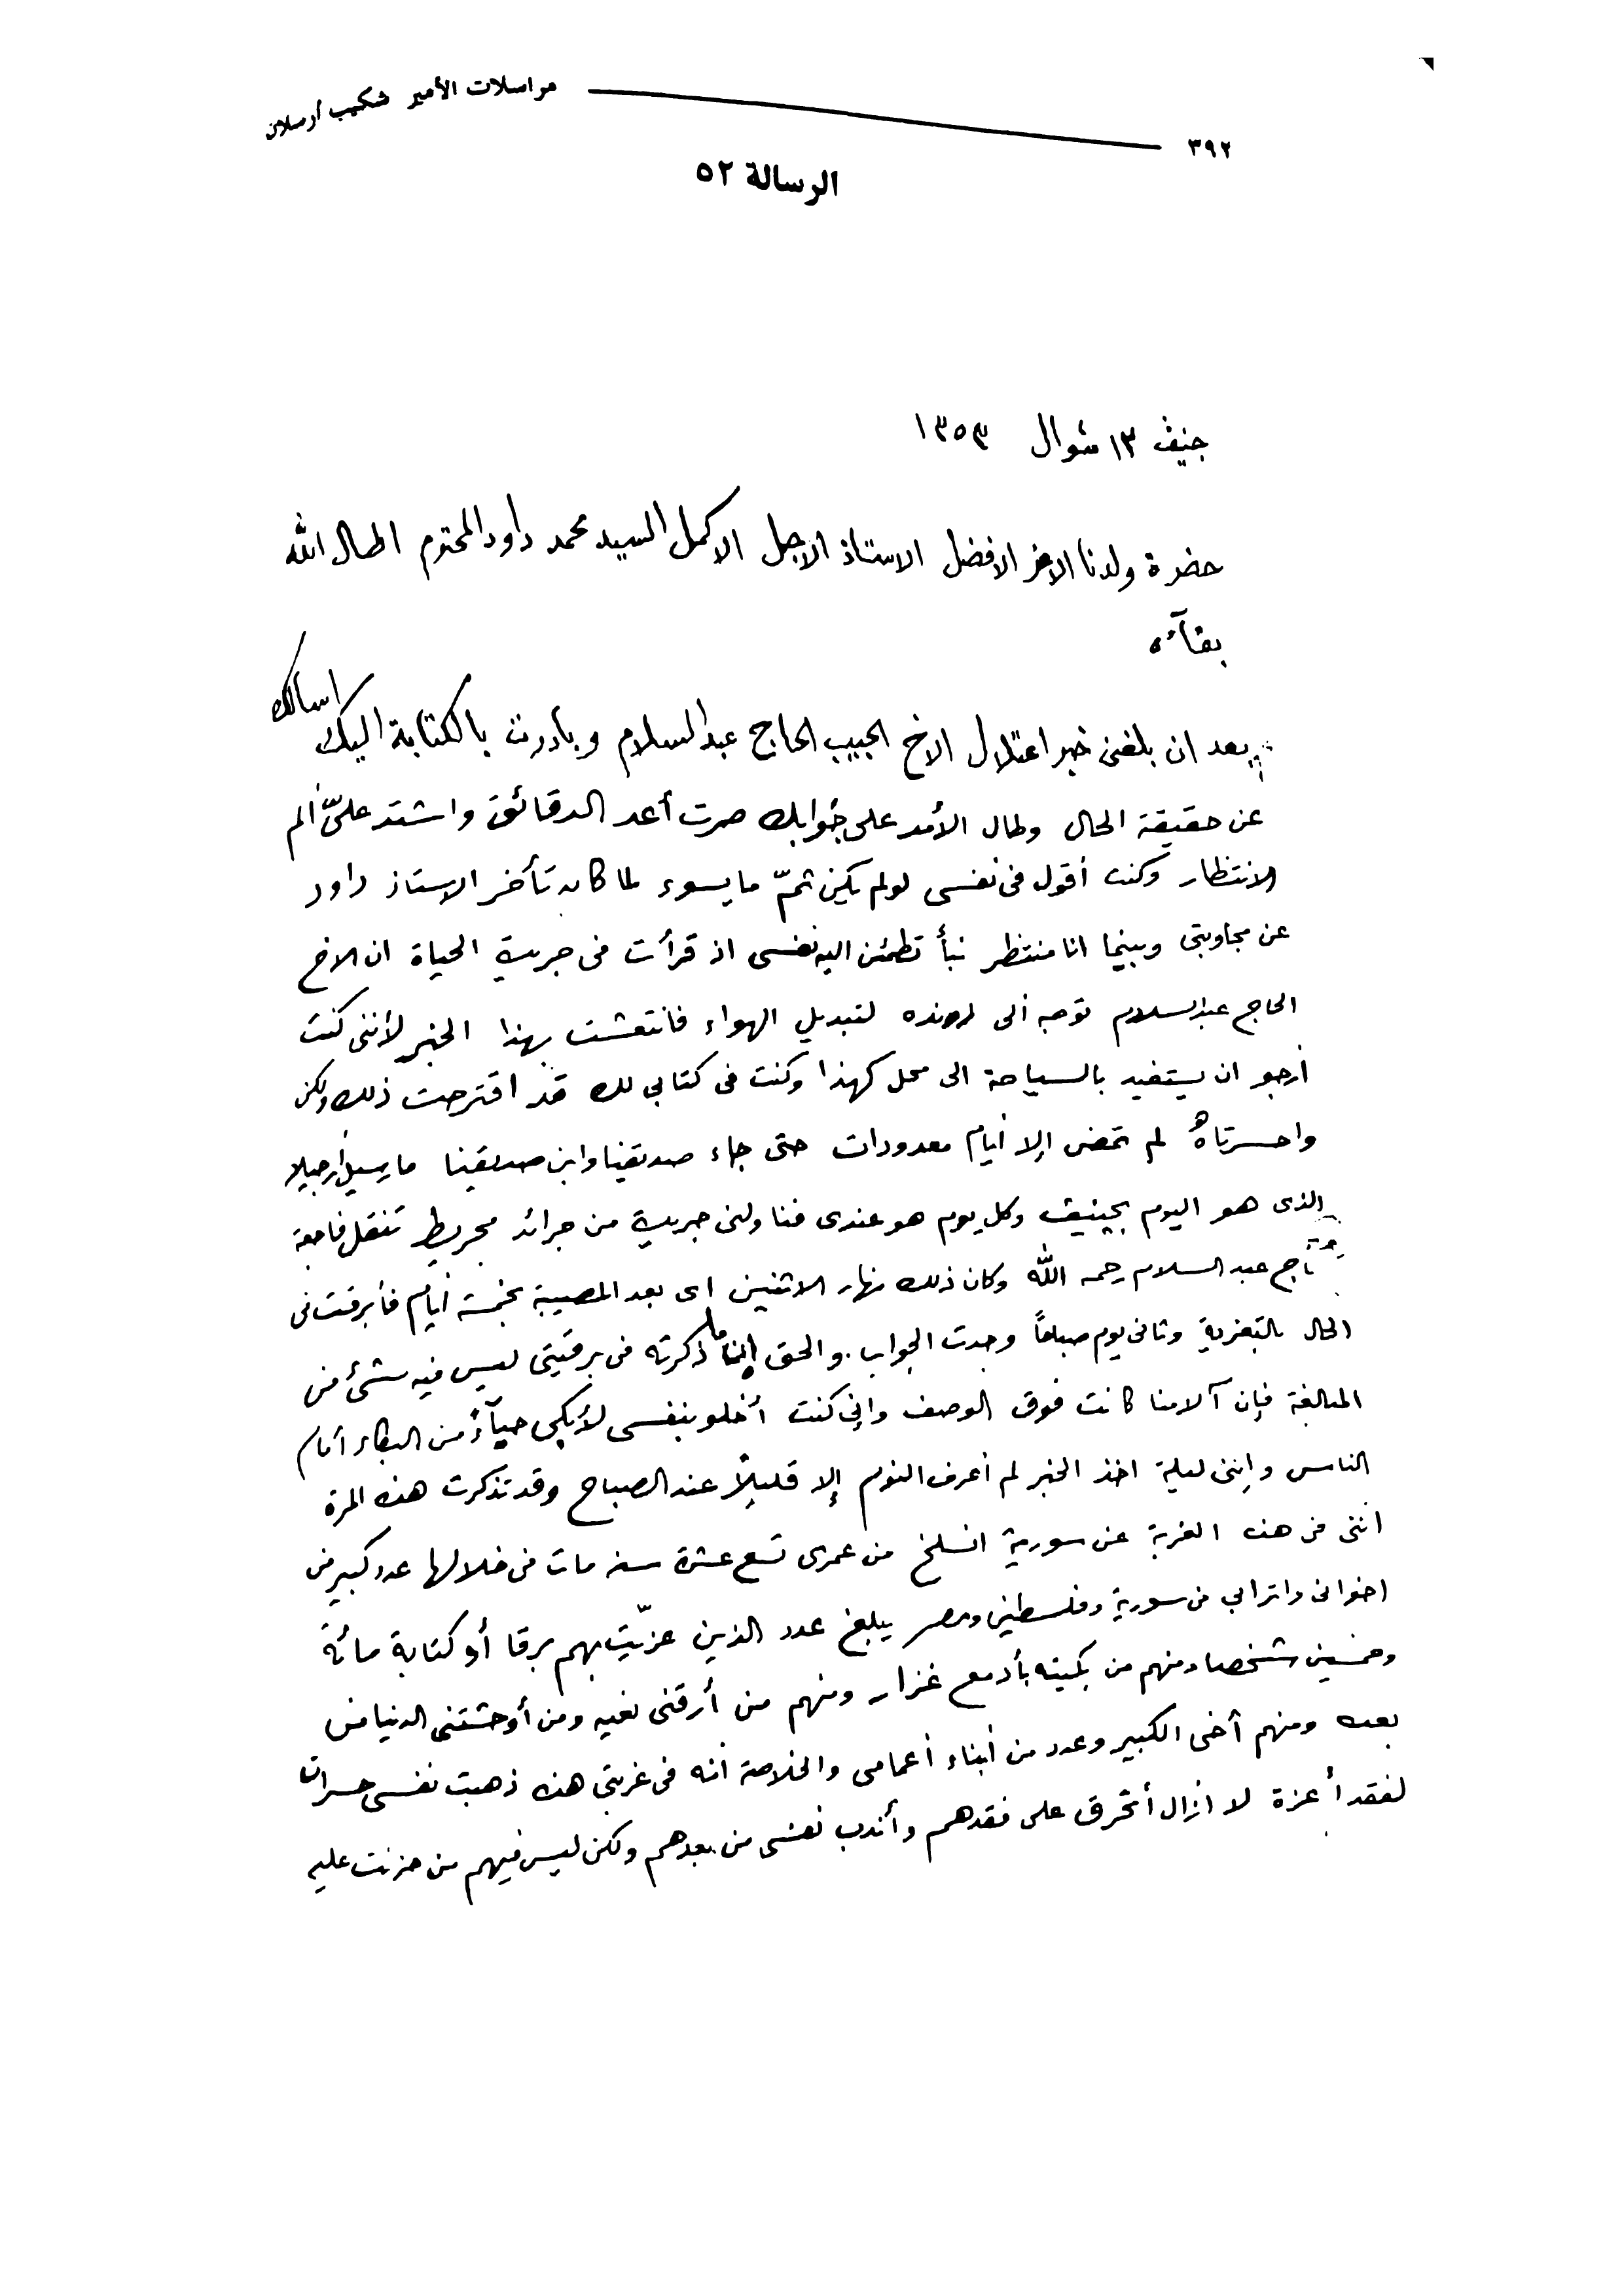 مراسلات الأمير شكيب أرسلان
٣٩٢
الرسالة ٥٢
جنيف ١٣ شوال ١٣٥٣
حضرة ولدنا الاعز الافضل الاستاذ الاجل الاكمل السيد محمد داود المحترم اطال الله
بقآءه
بعد ان بلغنى خبر اعتلال الاخ الحبيب الحاج عبد السلام وبادرت بالكتابة اليك اسألك
عن حقيقة الحال وطال الأمد على جوابك صرت أعد الدقائق واشتد علىّ ألم
الانتظار وكنت أقول فى نفسى لو لم يكن ثمّ ما يسوء لما كان تأخر الاستاذ داود
عن مجاوبتى وبينما انا منتظر نبأ تطمئن اليه نفسى اذ قرأت فى جريدة الحياة ان الاخ
الحاج عبد السلام توجه ألى لرونده لتبديل الهواء فانتعشت بهذا الخبر لأننى كنت
أرجو ان يستفيد بالسياحة الى محل كهذا وكنت فى كتابي لك قد اقترحت ذلك ولكن
واحسرتاهُ لم تمض إلا أيام معدودات حتى جاء صديقنا وابن صديقنا مارسيل ارجيلا
الذى هو اليوم بجينيف وكل يوم هو عندى فناولنى جريدة من جرائد مجريط تنقل فاجعة
الحاج عبد السلام رحمه الله وكان ذلك نهار الاثنين اى بعد المصيبة بخمسة أيام فأبرقت فى
الحال بالتعزية وثانى يوم صباحاً وجدت الجواب. والحق ان ما ذكرته فى برقيتى ليس فيه شئ من
المبالغة فإن آلامنا كانت فوق الوصف وإنى كنت أخلو بنفسى لأبكى حيآءً من البكاء أمام
الناس وإننى ليلة اخذ الخبر لم أعرف النوم إلا قليلاً عند الصباح وقد تذكرت هذه المرة
اننى فى هذه الغربة عن سورية انسلخ من عمرى تسع عشرة سنة مات فى خلالها عدد كبير من
اخوانى واترابي من سورية وفلسطين ومصر يبلغ عدد الذين عزّيت بهم برقا أو كتابة مائة
وخمسين شخصا ومنهم من بكيته بأدمع غزار ومنهم من أرقنى نعيه ومن أوحشتنى الدنيا من
بعده ومنهم أخى الكبير وعدد من أبناء أعمامى والخلاصة أنه فى غربتى هذه ذهبت نفسى حسرات
لفقد أعزة لا ازال أتحرق على فقدهم وأندب نفسى من بعدهم ولكن ليس فيهم من حزنت عليه